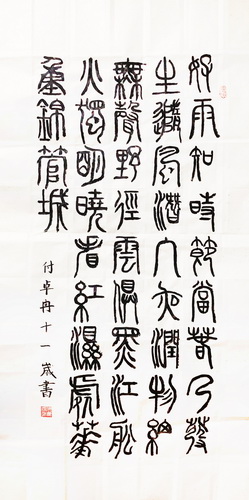 好雨知時節當春乃發
生隨風潛入夜潤物細
無聲野徑雲俱黑江船
火獨明曉看紅濕處華
重錦管城
付卓冉十一歲書